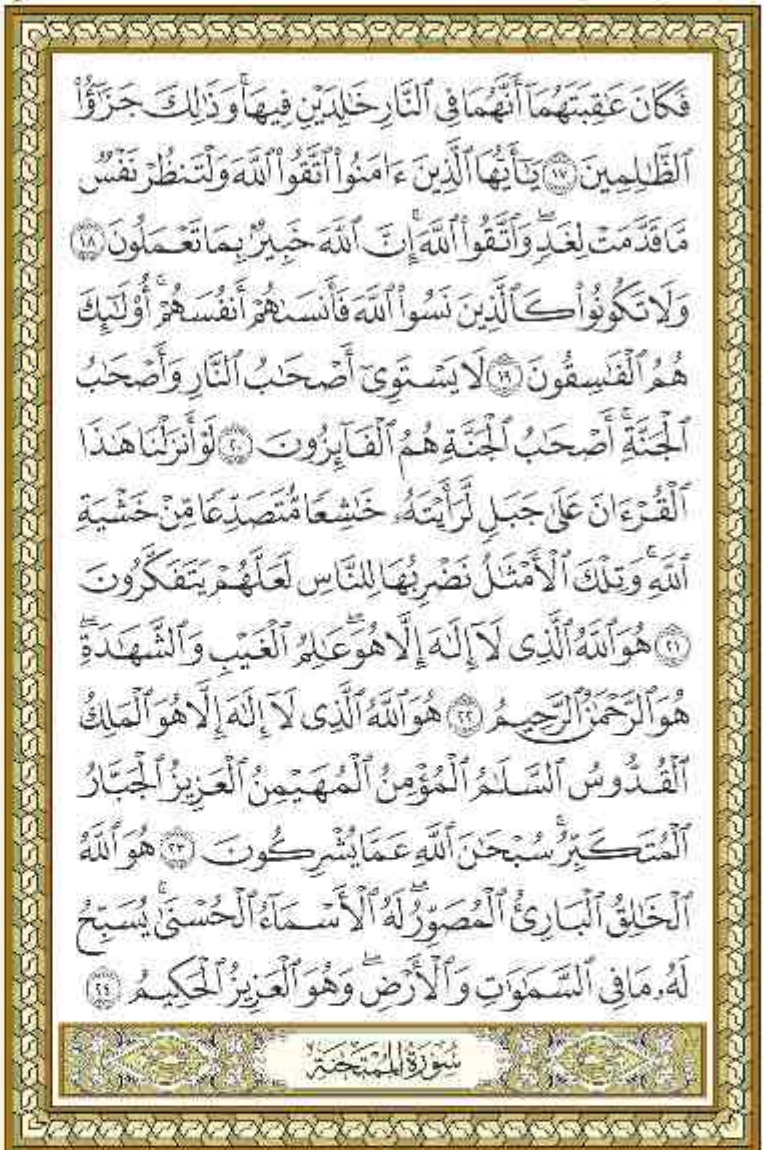 فَكَانَ عَٰقِبَتَهُمَآ أَنَّهُمَا فِى ٱلنَّارِ خَٰلِدَيْنِ فِيهَا ۚ وَذَٰلِكَ جَزَٰٓؤُا۟
ٱلظَّٰلِمِينَ ١٧ يَٰٓأَيُّهَا ٱلَّذِينَ ءَامَنُوا۟ ٱتَّقُوا۟ ٱللَّهَ وَلْتَنظُرْ نَفْسٌ
مَّا قَدَّمَتْ لِغَدٍ ۖ وَٱتَّقُوا۟ ٱللَّهَ ۚ إِنَّ ٱللَّهَ خَبِيرٌۢ بِمَا تَعْمَلُونَ ١٨
وَلَا تَكُونُوا۟ كَٱلَّذِينَ نَسُوا۟ ٱللَّهَ فَأَنسَىٰهُمْ أَنفُسَهُمْ ۚ أُو۟لَٰٓئِكَ
هُمُ ٱلْفَٰسِقُونَ ١٩ لَا يَسْتَوِىٓ أَصْحَٰبُ ٱلنَّارِ وَأَصْحَٰبُ
ٱلْجَنَّةِ ۚ أَصْحَٰبُ ٱلْجَنَّةِ هُمُ ٱلْفَآئِزُونَ ٢٠ لَوْ أَنزَلْنَا هَٰذَا
ٱلْقُرْءَانَ عَلَىٰ جَبَلٍ لَّرَأَيْتَهُۥ خَٰشِعًا مُّتَصَدِّعًا مِّنْ خَشْيَةِ
ٱللَّهِ ۚ وَتِلْكَ ٱلْأَمْثَٰلُ نَضْرِبُهَا لِلنَّاسِ لَعَلَّهُمْ يَتَفَكَّرُونَ
٢١ هُوَ ٱللَّهُ ٱلَّذِى لَآ إِلَٰهَ إِلَّا هُوَ ۖ عَٰلِمُ ٱلْغَيْبِ وَٱلشَّهَٰدَةِ ۖ
هُوَ ٱلرَّحْمَٰنُ ٱلرَّحِيمُ ٢٢ هُوَ ٱللَّهُ ٱلَّذِى لَآ إِلَٰهَ إِلَّا هُوَ ٱلْمَلِكُ
ٱلْقُدُّوسُ ٱلسَّلَٰمُ ٱلْمُؤْمِنُ ٱلْمُهَيْمِنُ ٱلْعَزِيزُ ٱلْجَبَّارُ
ٱلْمُتَكَبِّرُ ۚ سُبْحَٰنَ ٱللَّهِ عَمَّا يُشْرِكُونَ ٢٣ هُوَ ٱللَّهُ
ٱلْخَٰلِقُ ٱلْبَارِئُ ٱلْمُصَوِّرُ ۖ لَهُ ٱلْأَسْمَآءُ ٱلْحُسْنَىٰ ۚ يُسَبِّحُ
لَهُۥ مَا فِى ٱلسَّمَٰوَٰتِ وَٱلْأَرْضِ ۖ وَهُوَ ٱلْعَزِيزُ ٱلْحَكِيمُ ٢٤
سُورَةُ المُمْتَحنَةِ